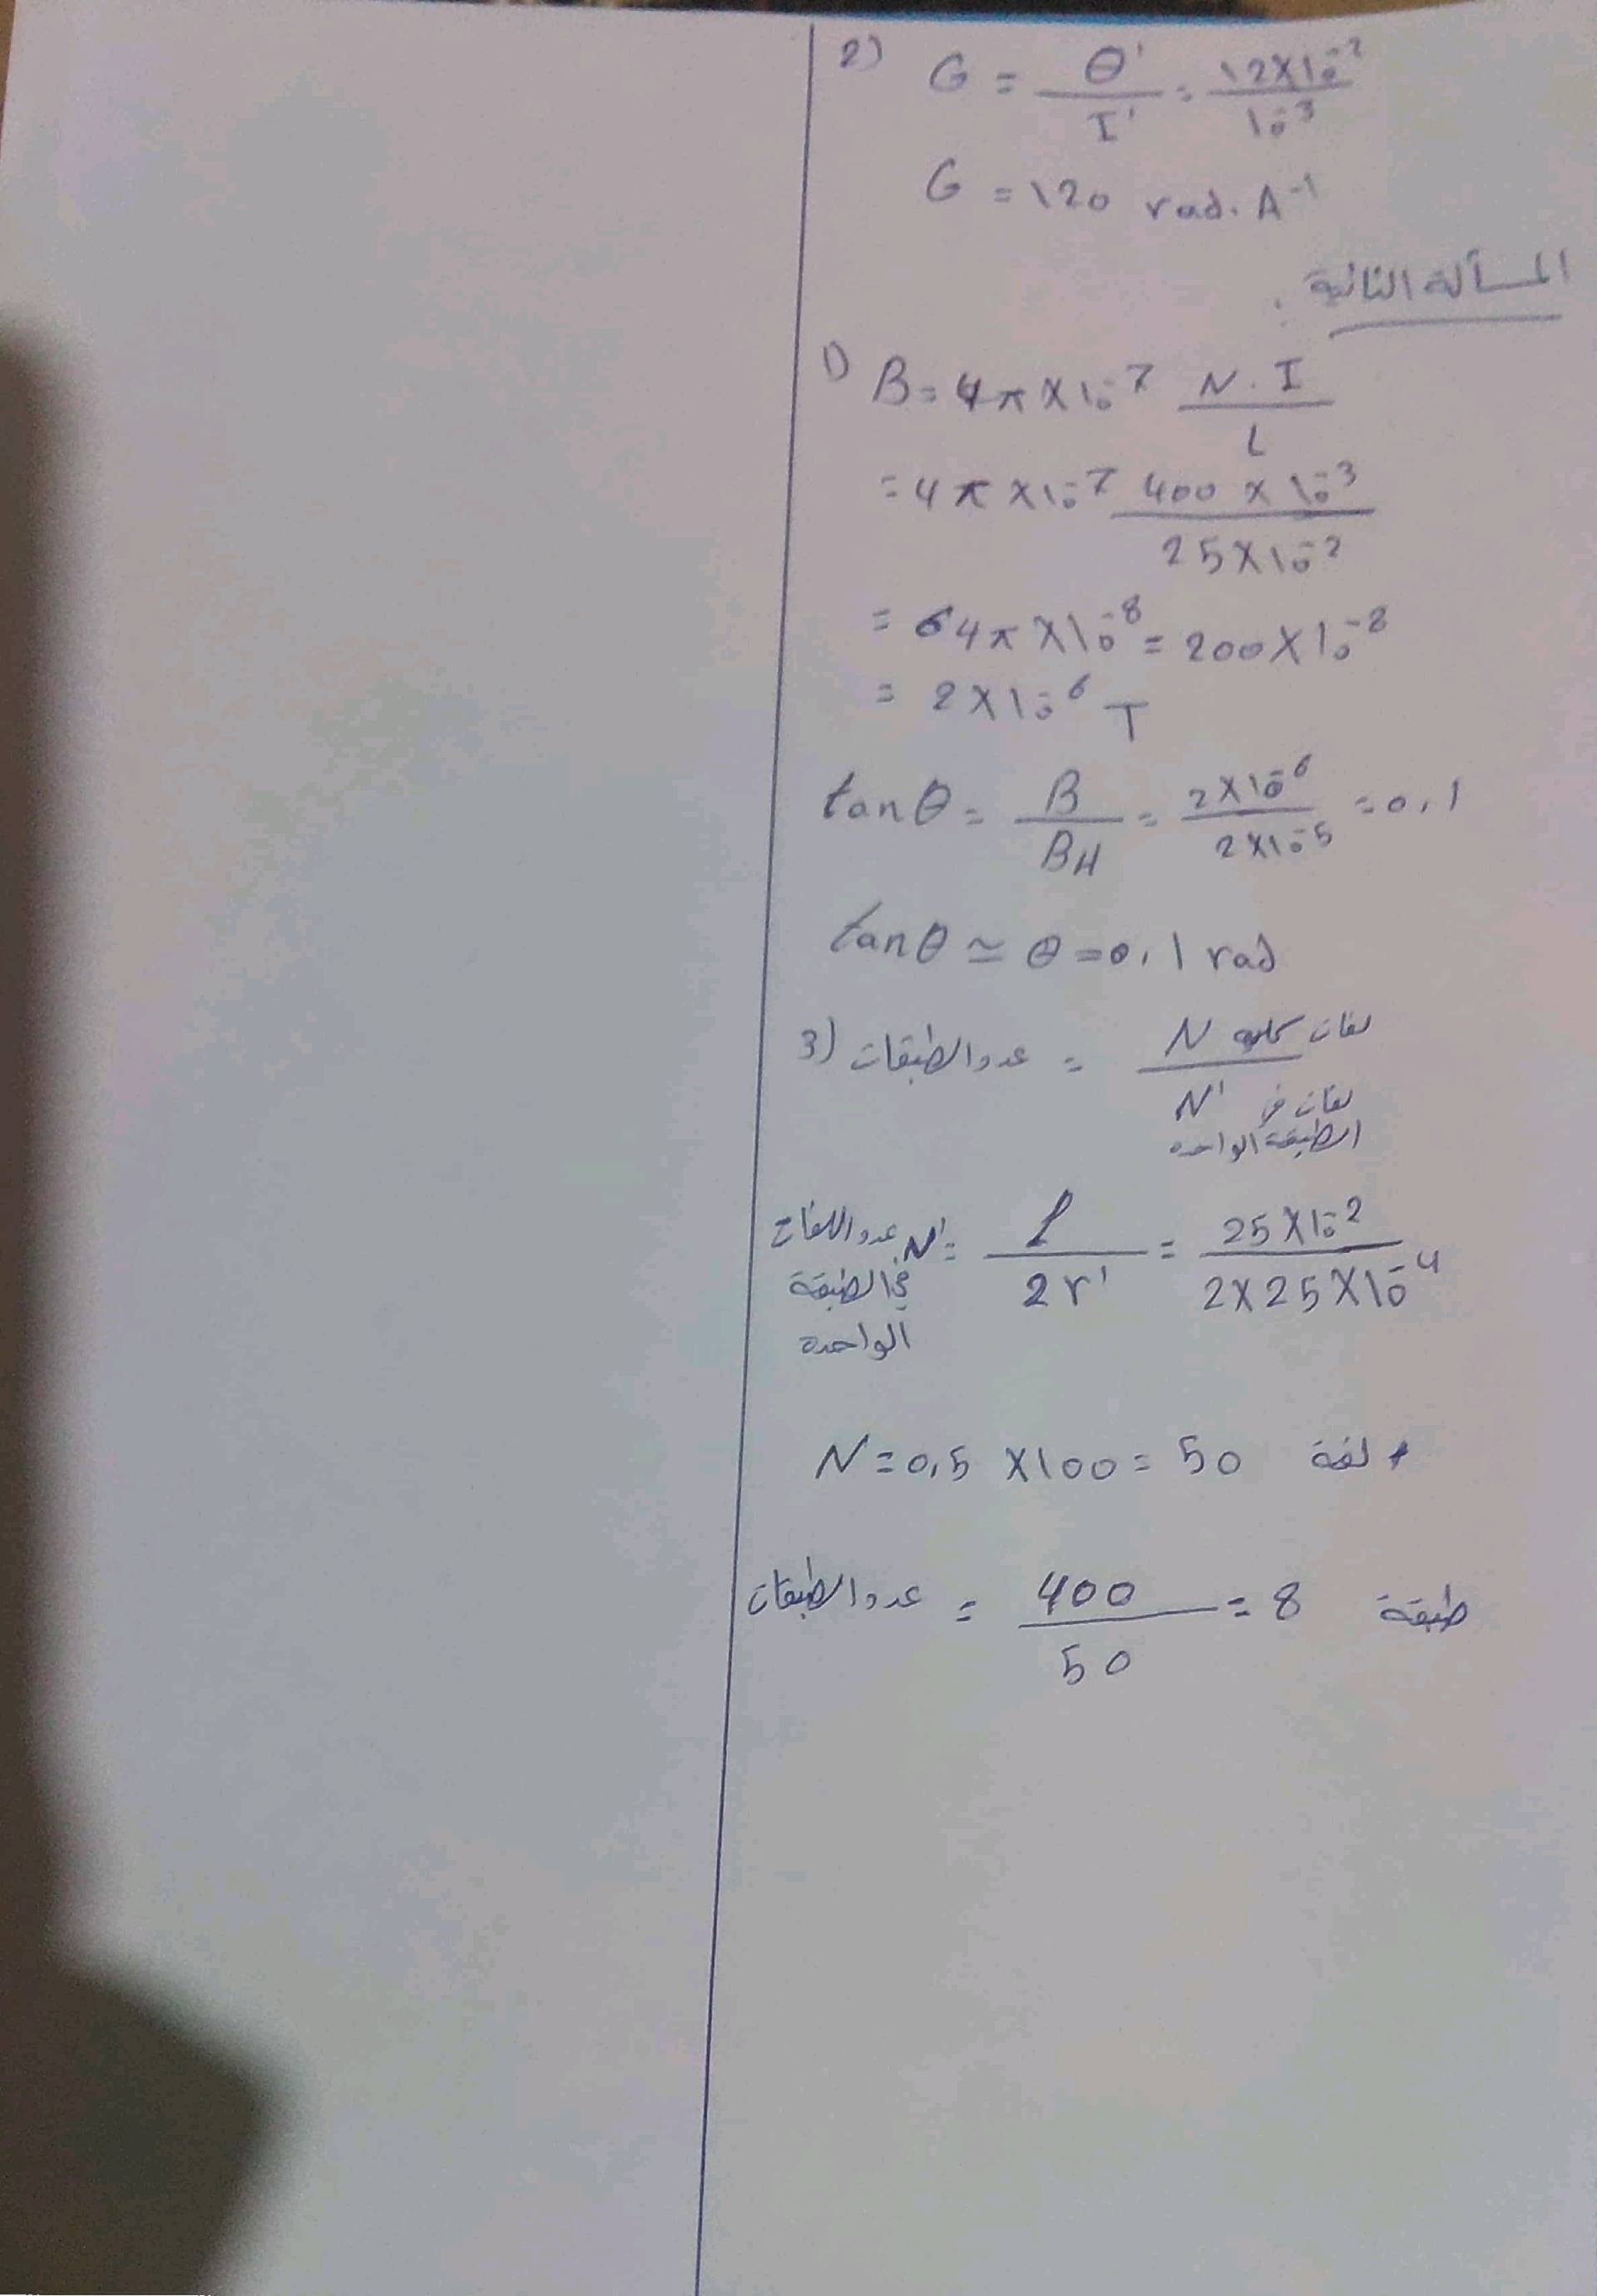 2) G = θ' / I' = 12×10⁻² / 10⁻³
G = 120 rad. A⁻¹
المسألة الثانية :
1) B = 4π × 10⁻⁷ N . I / L
= 4π × 10⁻⁷ 400 × 10⁻³ / 25×10⁻²
= 64π × 10⁻⁸ = 200 × 10⁻⁸
= 2 × 10⁻⁶ T
tan θ = B / BH = 2×10⁻⁶ / 2×10⁻⁵ = 0,1
tan θ ≃ θ = 0,1 rad
3) عدد الطبقات = N لفات كلية / N' لفات في الطبقة الواحدة
عدد اللفات في الطبقة الواحدة N' = l / 2r' = 25×10⁻² / 2×25×10⁻⁴
N = 0,5 × 100 = 50 لفة
عدد الطبقات = 400 / 50 = 8 طبقة